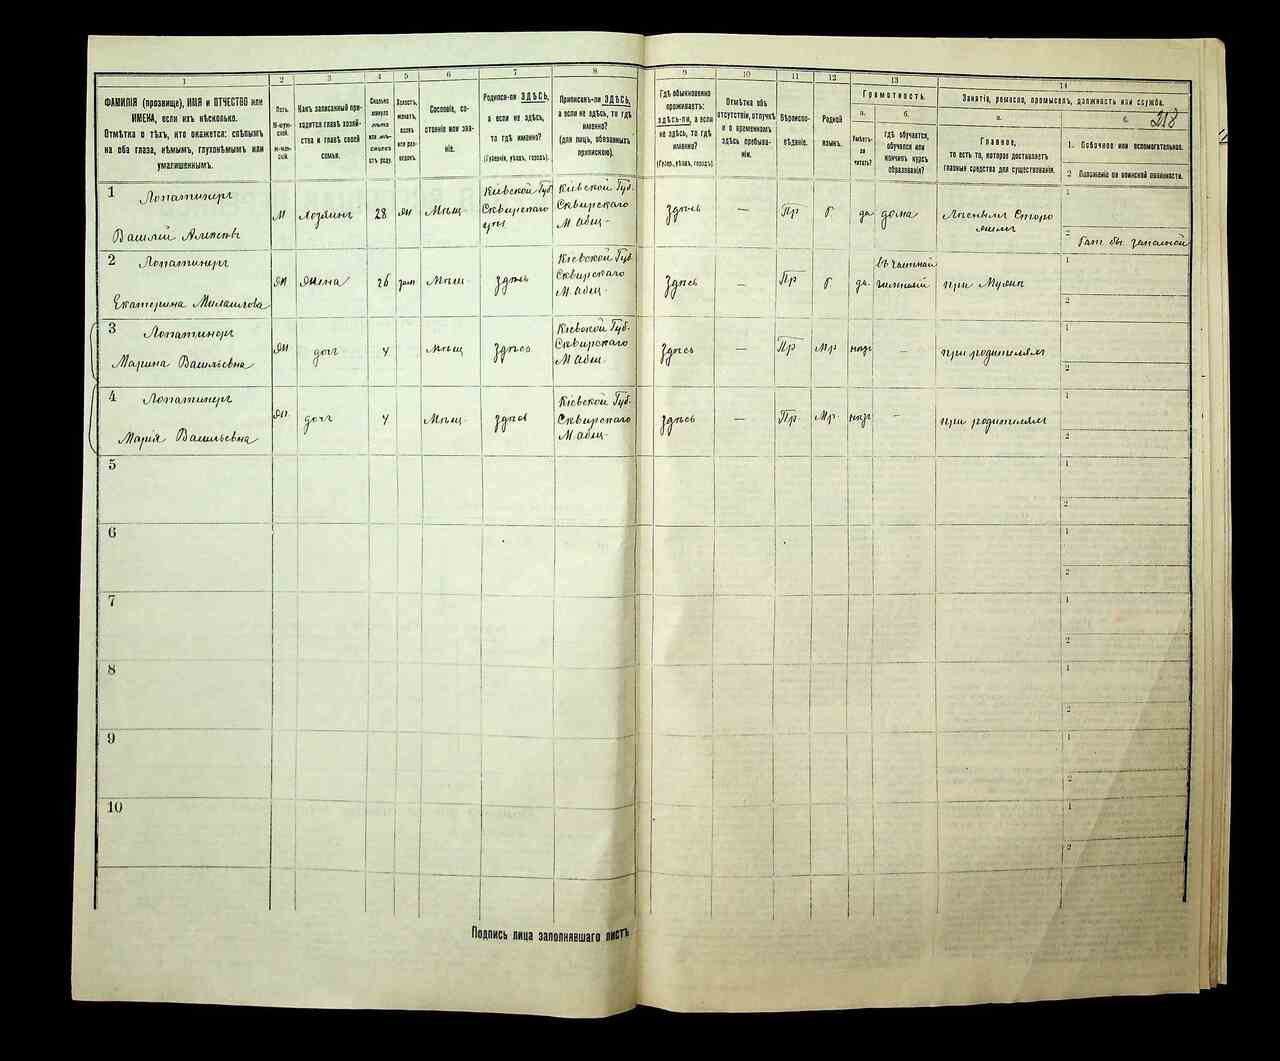 1
2
3
4
5
6
7
8
9
10
11
12
13
14
ФАМИЛІЯ (прозвище), ИМЯ и ОТЧЕСТВО или
ИМЕНА, если ихъ нѣсколько.
Отмѣтка о тѣхъ, кто окажется: слѣпымъ
на оба глаза, нѣмымъ, глухонѣмымъ или
умалишеннымъ.
Полъ.
М-муж-
ской.
Ж-жен-
скій.
Какъ записанный при-
ходится главѣ хозяй-
ства и главѣ своей
семьи.
Сколько
минуло
лѣтъ
или мѣ-
сяцевъ
отъ роду.
Холостъ,
женатъ,
вдовъ
или раз-
веденъ.
Сословіе, со-
стояніе или зва-
ніе.
Родился-ли ЗДѢСЬ,
а если не здѣсь,
то гдѣ именно?
(Губернія, уѣздъ, городъ).
Приписанъ-ли ЗДѢСЬ,
а если не здѣсь, то гдѣ
именно?
(для лицъ, обязанныхъ
припискою).
Гдѣ обыкновенно
проживаетъ:
здѣсь-ли, а если
не здѣсь, то гдѣ
именно?
(Губер., уѣздъ, городъ).
Отмѣтка объ
отсутствіи, отлучкѣ
и о временномъ
здѣсь пребыва-
ніи.
Вѣроиспо-
вѣданіе.
Родной
языкъ.
Грамотность.
а.
Умѣетъ-
ли
читать?
б.
Гдѣ обучается,
обучался или
кончилъ курсъ
образованія?
Занятіе, ремесло, промыселъ, должность или служба.
а.
Главное,
то есть то, которое доставляетъ
главныя средства для существованія.
б.
218
1. Побочное или вспомогательное.
2 Положеніе по воинской повинности.
1
Лопатинеръ
Василій
М
Хозяинъ
28
Мѣщ.
Кіевской Губ.
Сквирскаго
Кіевской Губ.
Сквирскаго
М.
Здѣсь
—
Пр
да
дома
1
2
2
Лопатинеръ
Екатерина Михайлова
Ж
Жена
26
зам
Мѣщ.
здѣсь
Кіевской Губ.
Сквирскаго
М.
Здѣсь
—
Пр
да
въ частной
гимназіи
при Мужѣ
1
2
3
Лопатинеръ
Марина Васильевна
Ж
дочь
4
Мѣщ
Здѣсь
Кіевской Губ.
Сквирскаго
М.
Здѣсь
—
Пр
—
при родителяхъ
1
2
4
Лопатинеръ
Марія Васильевна
Ж
дочь
4
Мѣщ.
здѣсь
Кіевской Губ.
Сквирскаго
М.
Здѣсь
—
Пр.
—
при родителяхъ
1
2
5
1
2
6
1
2
7
1
2
8
1
2
9
1
2
10
1
2
Подпись лица заполнявшаго листъ